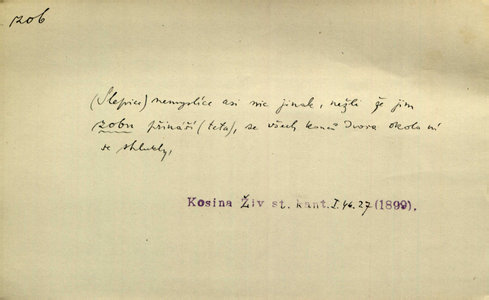 zob
(Slepice) nemyslíce asi nic jinak, nežli že jim
zobu přináší (teta), se všech konců dvora okolo ní
se shlukly,
Kosina Živ st. kant. I.46.27 (1899).